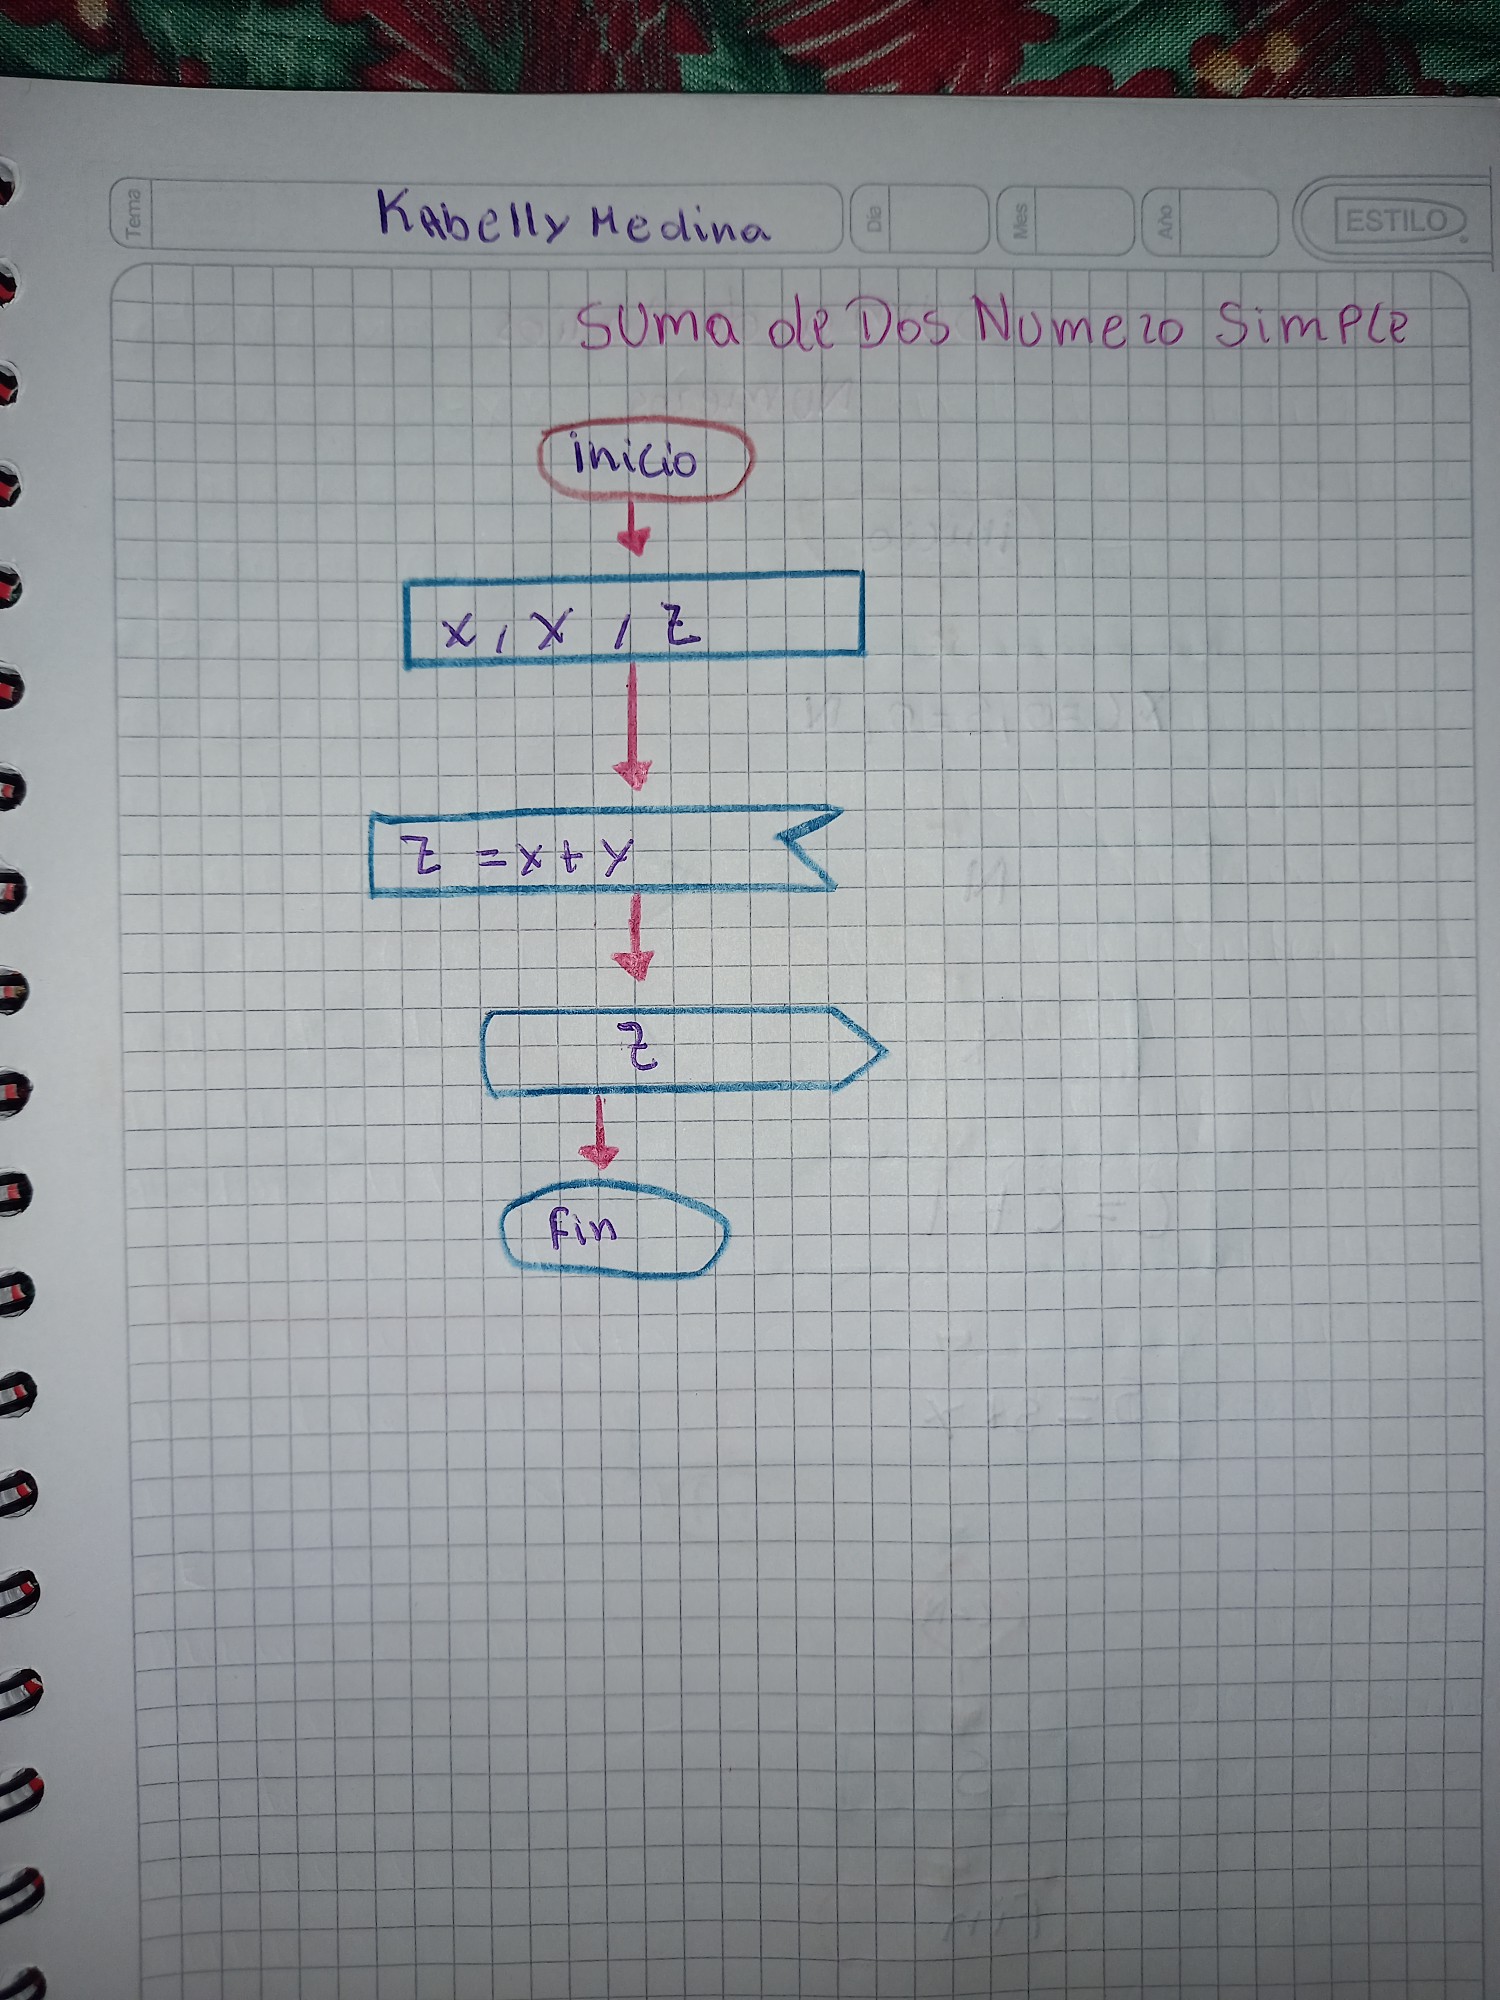 Tema
Kabelly Medina
Día
Mes
Año
ESTILO
Suma de Dos Numero Simple
inicio
x, x, z
z = x + y
z
Fin